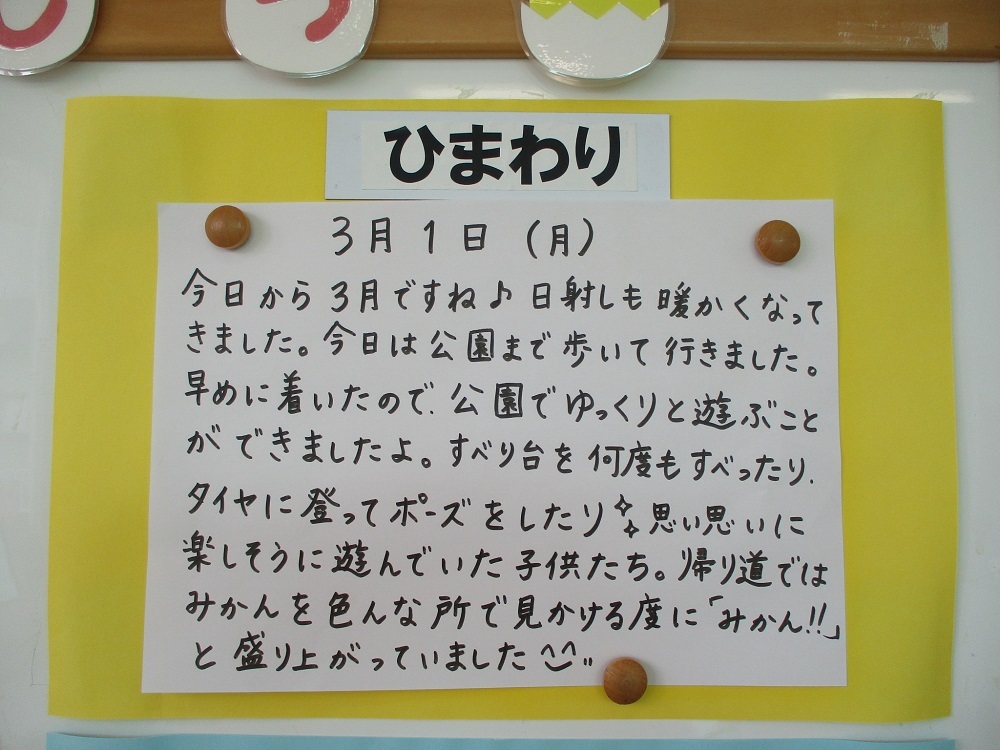 ひまわり
3月1日(月)
今日から3月ですね♪日射しも暖かくなって
きました。今日は公園まで歩いて行きました。
早めに着いたので、公園でゆっくりと遊ぶこと
ができましたよ。すべり台を何度もすべったり、
タイヤに登ってポーズをしたり✧思い思いに
楽しそうに遊んでいた子供たち。帰り道では
みかんを色んな所で見かける度に「みかん!!」
と盛り上がっていました^^